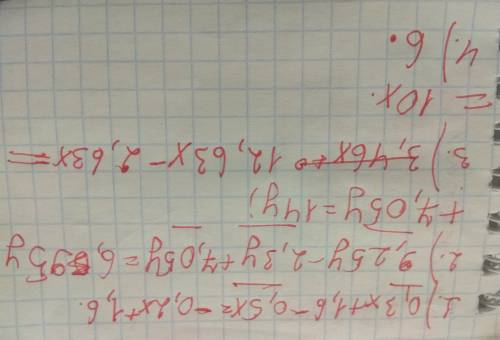 1.) 0,3x+1,6-0,5x=-0,2x+1,6.
2.) 9,25y-2,3y+7,05y=6,95y
+7,05y=14y;
3.) 12,63x-2,63x=
=10x.
4.) 6.